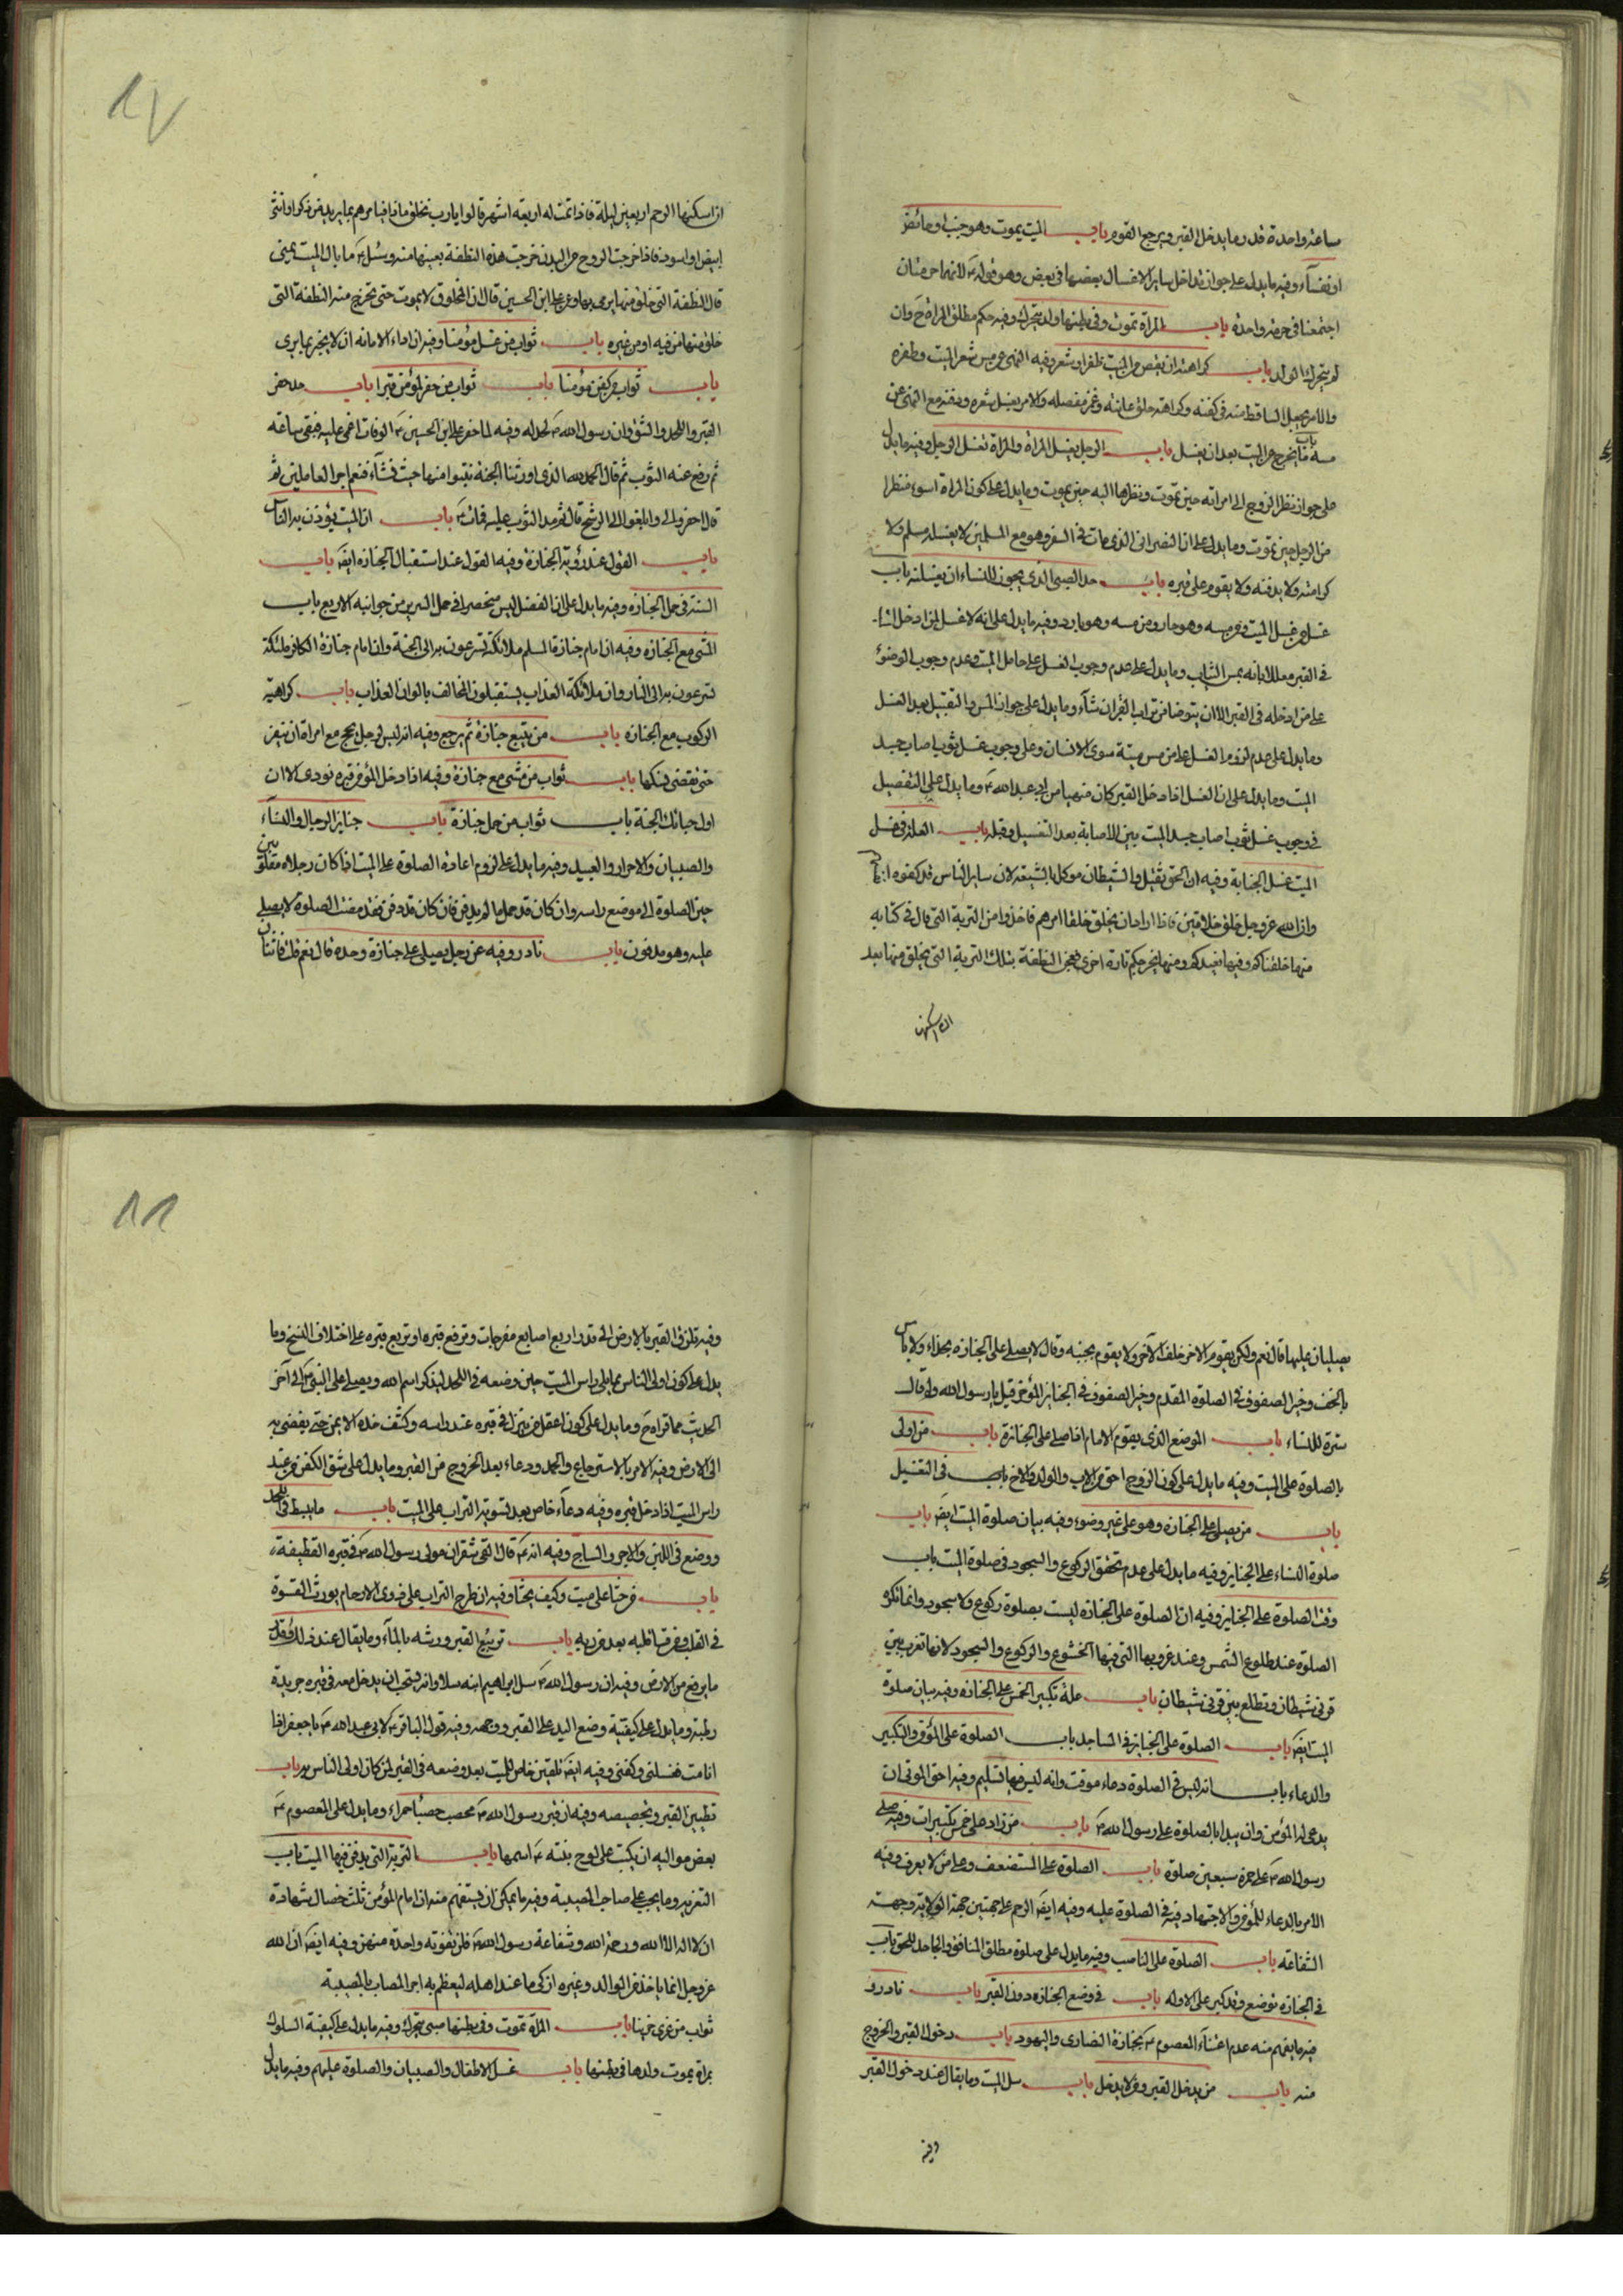 ساعة واحدة قدر ما يدخل القبر ويرجع القوم باب الميت يموت وهو جنب او حائض
او نفسآء وفيه ما يدل على جواز تداخل ساير الاغسال بعضها فى بعض وهو قوله ع لانهما حرمتان
اجتمعتا فى حرمة واحدة باب المراة تموت وفى بطنها ولد يتحرك وفيه حكم مطلق المراة ح وان
لم يتحرك الولد باب كراهة ان يقص من الميت ظفر او شعر وفيه النهى عن مس شعر الميت وظفره
والامر بجعل الساقط منه فى كفنه وكراهة حلق عانته وغمز مفصله والامر بغسل شعره ودفنه مع النهى عن
مسه باب ما يخرج من الميت بعد ان يغسل باب الرجل يغسل المراة والمراة تغسل الرجل وفيه ما يدل
على جواز نظر الزوج الى امراته حين تموت ونظرها اليه حين يموت وما يدل على كون المراة اسوء منظرا
من الرجل حين تموت وما يدل على ان النصرانى الذى مات فى السفر وهو مع المسلمين لا يغسله مسلم ولا
كرامة ولا يدفنه ولا يقوم على قبره باب حد الصبى الذى يجوز للنساء ان يغسلنه باب
غسل من غسل الميت ومن مسه وهو حار ومن مسه وهو بارد وفيه ما يدل على انه لا غسل لمن ادخل الميت
فى القبر معللا بانه يمس الثياب وما يدل على عدم وجوب الغسل على حامل الميت وعدم وجوب الوضوء
على من ادخله فى القبر الا ان يتوضا من تراب القبر ان شآء وما يدل على جواز المس والتقبيل بعد الغسل
وما يدل على عدم لزوم الغسل على من مس ميتة سوى الانسان وعلى وجوب غسل ثوب اصاب جسد
الميت وما يدل على ان الغسل اذا دخل القبر كان منهيا من ابى عبد الله ع وما يدل على التفصيل
فى وجوب غسل ثوب اصاب جسد الميت بين الاصابة بعد التغسيل وقبله باب العلة فى غسل
الميت غسل الجنابة وفيه ان الحق ثقيل والشيطان موكل بالشيعة لان ساير الناس قد كفوه انفسهم
وان الله عز وجل خلق خلاقين فاذا اراد ان يخلق خلقا امرهم فاخذوا من التربة التى قال فى كتابه
منها خلقناكم وفيها نعيدكم ومنها نخرجكم تارة اخرى فعجن النطفة بتلك التربة التى يخلق منها بعد
ان اسكنها
ان اسكنها الرحم اربعين ليلة فاذا تمت له اربعة اشهر قالوا يا رب نخلق ماذا فيامرهم بما يريد من ذكر او انثى
ابيض او اسود فاذا خرجت الروح من البدن خرجت هذه النطفة بعينها منه وسئل ع ما بال الميت يمنى
قال النطفة التى خلق منها يرمى بها وعن على ابن الحسين قال ان المخلوق لا يموت حتى تخرج منه النطفة التى
خلق منها من فيه او من غيره باب ثواب من غسل مؤمنا وفيه ان اداء الامانة ان لا يخبر بما يرى
باب ثواب من كفن مؤمنا باب ثواب من حفر لمؤمن قبرا باب حد حفر
القبر واللحد والشق وان رسول الله ص لحد له وفيه لما حضر على ابن الحسين ع الوفات اغمى عليه فبقى ساعة
ثم رفع عنه الثوب ثم قال الحمد لله الذى اورثنا الجنة نتبوا منها حيث نشآء فنعم اجر العاملين ثم
قال احفروا لى وابلغوا الى الرشح قال ثم مد الثوب عليه فمات ع باب ان الميت يؤذن به الناس
باب القول عند رؤية الجنازة وفيه القول عند استقبال الجنازة ايض باب
السنة فى حمل الجنازة وفيه ما يدل على ان الفضل ليس منحصرا فى حمل السرير من جوانبه الاربع باب
المشى مع الجنازة وفيه ان امام جنازة المسلم ملائكة تسرعون به الى الجنة وان امام جنازة الكافر ملئكة
تسرعون به الى النار وان ملائكة العذاب يستقبلون المخالف بالوان العذاب باب كراهية
الركوب مع الجنازة باب من يتبع جنازة ثم يرجع وفيه انه ليس لرجل يحج مع امراة ان ينفر
حتى تقضى نسكها باب ثواب من مشى مع جنازة وفيه اذا دخل المؤمن قبره نودى الا ان
اول حبائك الجنة باب ثواب من حمل جنازة باب جنايز الرجال والنسآء
والصبيان والاحرار والعبيد وفيه ما يدل على لزوم اعادة الصلوة على الميت اذا كان رجلاه مقلوبتين
حين الصلوة الى موضع راسه وان كان قد حمل ما لم يدفن فان كان قد دفن فقد مضت الصلوة لا يصلى
عليه وهو مدفون باب نادر وفيه عن رجل يصلى على جنازة وحده قال نعم قلت فاثنان
يصليان عليها قال نعم ولكن يقوم الاخر خلف الآخر ولا يقوم بجنبه وقال لا يصلى على الجنازة بحذاء ولا باس
بالخف وخير الصفوف فى الصلوة المقدم وخير الصفوف فى الجنايز المؤخر قيل يا رسول الله ولم قال
سترة للنساء باب الموضع الذى يقوم الامام اذا صلى على الجنازة باب من اولى
بالصلوة على الميت وفيه ما يدل على كون الزوج احق من الاب والولد والاخ باب فى التغسيل
باب من يصلى على الجنازة وهو على غير وضوء وفيه بيان صلوة الميت ايض باب
صلوة النساء على الجنايز وفيه ما يدل على عدم تحقق الركوع والسجود فى صلوة الميت باب
وقت الصلوة على الجنايز وفيه ان الصلوة على الجنازة ليست بصلوة ركوع ولا سجود وانما تكره
الصلوة عند طلوع الشمس وعند غروبها التى فيها الخشوع والركوع والسجود لانها تغرب بين
قرنى شيطان وتطلع بين قرنى شيطان باب علة تكبير الخمس على الجنازة وفيه بيان صلوة
الميت ايض باب الصلوة على الجنايز فى المساجد باب الصلوة على المؤمن والتكبير
والدعاء باب انه ليس فى الصلوة دعاء موقت وانه ليس فيها تسليم وفيه احق الموتى ان
يدعى له المؤمن وان يبدا بالصلوة على رسول الله ص باب من زاد على خمس تكبيرات وفيه صلى
رسول الله ص على حمزة سبعين صلوة باب الصلوة على المستضعف وعلى من لا يعرف وفيه
الامر بالدعاء للمؤمن والاجتهاد فيه فى الصلوة عليه وفيه ايض الترحم على جهتين جهة الولاية وجهة
الشفاعة باب الصلوة على الناصب وفيه ما يدل على صلوة مطلق المنافق والجاحد للحق باب
فى الجنازة توضع وقد كبر على الاولة باب فى وضع الجنازة دون القبر باب نادر و
فيه ما يفهم منه عدم اعتنآء المعصوم ع بجنازة النصارى واليهود باب دخول القبر والخروج
منه باب من يدخل القبر ومن لا يدخل باب سل الميت وما يقال عند دخول القبر
وفيه
وفيه تلزق القبر بالارض الى قدر اربع اصابع مفرجات وترفع قبره او تربع قبره على اختلاف النسخ وما
يدل على كون اولى الناس مما يلى راس الميت حين وضعه فى اللحد ليذكر اسم الله ويصلى على النبى ص الى آخر
الحديث مما قراه ح وما يدل على كون اعقل من ينزل فى قبره عند راسه وكشف خده الايمن حتى يفضى به
الى الارض وفيه الامر بالاسترجاع والحمد ودعاء بعد الخروج من القبر وما يدل على شق الكفن من عند
راس الميت اذا دخل قبره وفيه دعآء خاص بعد تسوية التراب على الميت باب ما يبسط فى اللحد
ووضع فى اللبن والاجر والساج وفيه انه ع قال القى شقران مولى رسول الله ص فى قبره القطيفة
باب من حثا على ميت وكيف يحثا وفيه ان طرح التراب على ذوى الارحام يورث القسوة
فى القلب باب تربيع القبر ورشه بالمآء وما يقال عند ذلك وقدر
ما يرفع من الارض وفيه ان رسول الله ص سل ابراهيم ابنه سلا وانه يستحب ان يدخل معه فى قبره جريدة
رطبة وما يدل على كيفية وضع اليد على القبر وفيه قول الباقر ع لابى عبد الله ع يا جعفر اذا
انا مت فغسلنى وكفنى وفيه ايض تلقين خاص للميت بعد وضعه فى القبر لمن كان اولى الناس به باب
تطيين القبر وتجصيصه وفيه ان قبر رسول الله ص محصب حصباء حمراء وما يدل على المعصوم ع
بعض مواليه ان يكتب على لوح بنته ع اسمها باب التربة التى يدفن فيها الميت باب
التعزية وما يجب على صاحب المصيبة وفيه ما يمكن ان يستفهم منه ان امام المؤمن ثلث خصال شهادة
ان لا اله الا الله ورحمة الله وشفاعة رسول الله ص فلن تفوته واحدة منهن وفيه ايض ان الله
عز وجل انما ياخذ من الوالد وغيره ازكى ما عند اهله ليعظم به اجر المصاب بالمصيبة
ثواب من عزى حزينا باب المراة تموت وفى بطنها صبى يتحرك وفيه ما يدل على كيفية السلوك
بمراة يموت ولدها فى بطنها باب غسل الاطفال والصبيان والصلوة عليهم وفيه ما يدل